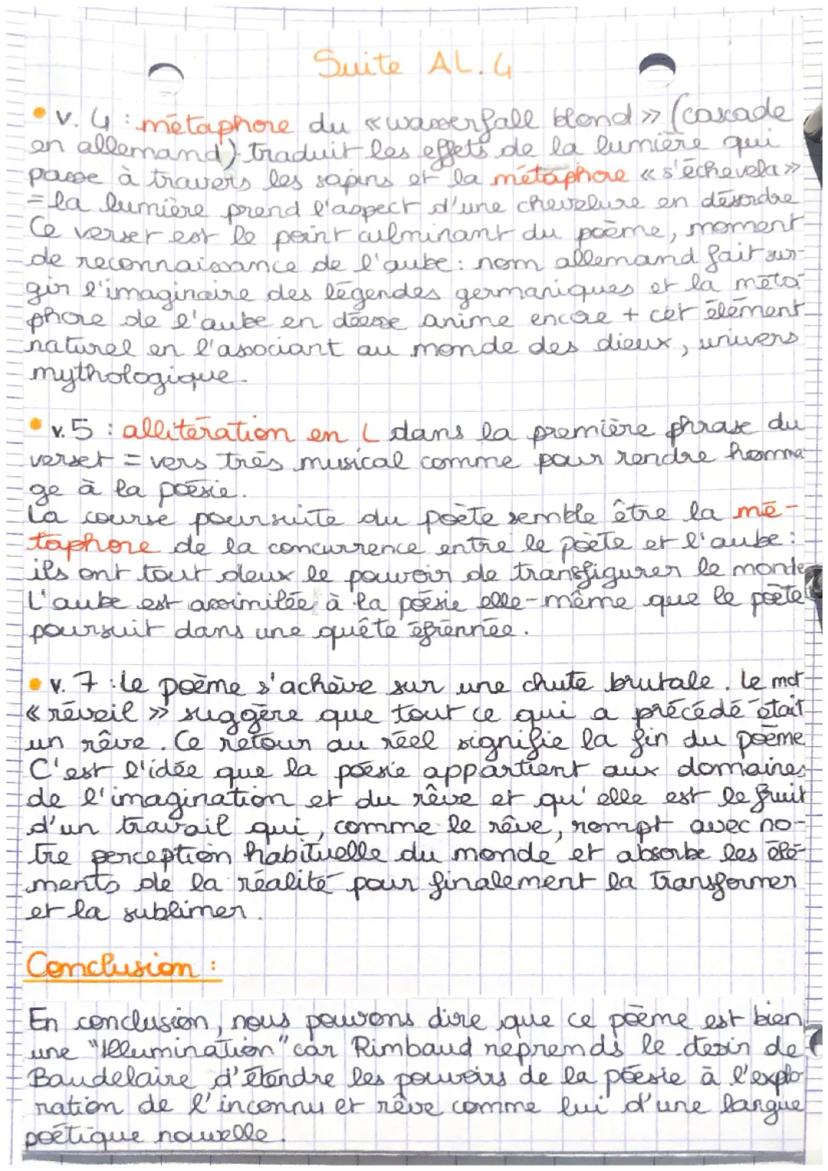 Suite AL.4
• v. 4 : métaphore du « wasserfall blond » (cascade
en allemand) traduit les effets de la lumière qui
passe à travers les sapins et la métaphore « s'échevela »
= la lumière prend l'aspect d'une chevelure en désordre
Ce verset est le point culminant du poème, moment
de reconnaissance de l'aube : nom allemand fait sur-
gir l'imaginaire des légendes germaniques et la méta
phore de l'aube en déesse anime encore + cet élément
naturel en l'associant au monde des dieux, univers
mythologique.
• v. 5 : allitération en L dans la première phrase du
verset = vers très musical comme pour rendre homma
ge à la poésie.
La course poursuite du poète semble être la mé-
taphore de la concurrence entre le poète et l'aube :
ils ont tout deux le pouvoir de transfigurer le monde
L'aube est assimilée à la poésie elle-même que le poète
poursuit dans une quête éfrennée.
• v. 7 : Le poème s'achève sur une chute brutale. Le mot
« réveil » suggère que tout ce qui a précédé était
un rêve. Ce retour au réel signifie la fin du poème
C'est l'idée que la poésie appartient aux domaines
de l'imagination et du rêve et qu'elle est le fruit
d'un travail qui, comme le rêve, rompt avec no-
tre perception habituelle du monde et absorbe les élé-
ments de la réalité pour finalement la transformer
et la sublimer.
Conclusion :
En conclusion, nous pouvons dire que ce poème est bien
une "Illumination" car Rimbaud reprends le desir de
Baudelaire d'étendre les pouvoirs de la poésie à l'explo
ration de l'inconnu et rêve comme lui d'une langue
poétique nouvelle.